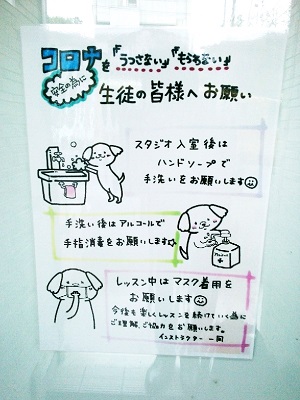 コロナを『うつさない』『もらわない』
安全の為に
生徒の皆様へお願い
スタジオ入室後は
ハンドソープで
手洗いをお願いします
手洗い後はアルコールで
手指消毒をお願いします
アルコール
レッスン中はマスク着用を
お願いします
今後も楽しくレッスンを続けていく為に
ご理解、ご協力をお願いします。
インストラクター 一同